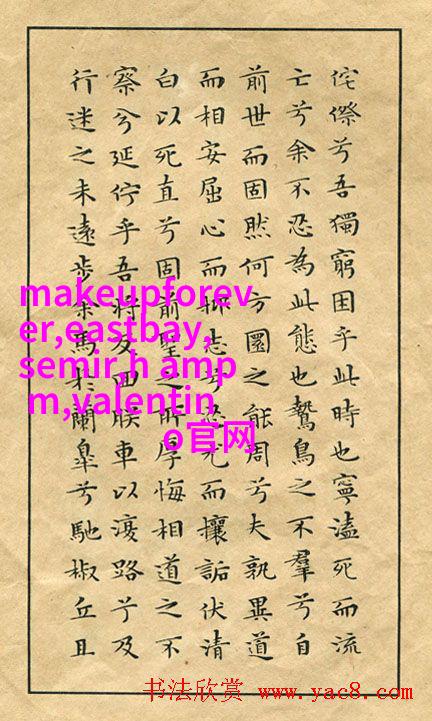 侘傺兮吾獨窮困乎此時也寧溘死而流
亡兮余不忍為此態也鷙鳥之不羣兮自
前世而固然何方圜之能周兮夫孰異道
而相安屈心而抑志兮忍尤而攘詬伏清
白以死直兮固前聖之所厚悔相道之不
察兮延佇乎吾將反回朕車以復路兮及
行迷之未遠步余馬於蘭皋兮馳椒丘且
makeupforeve
r,eastbay,
semir,h amp
m,valentin
o官网
书法欣赏 www.yac8.com